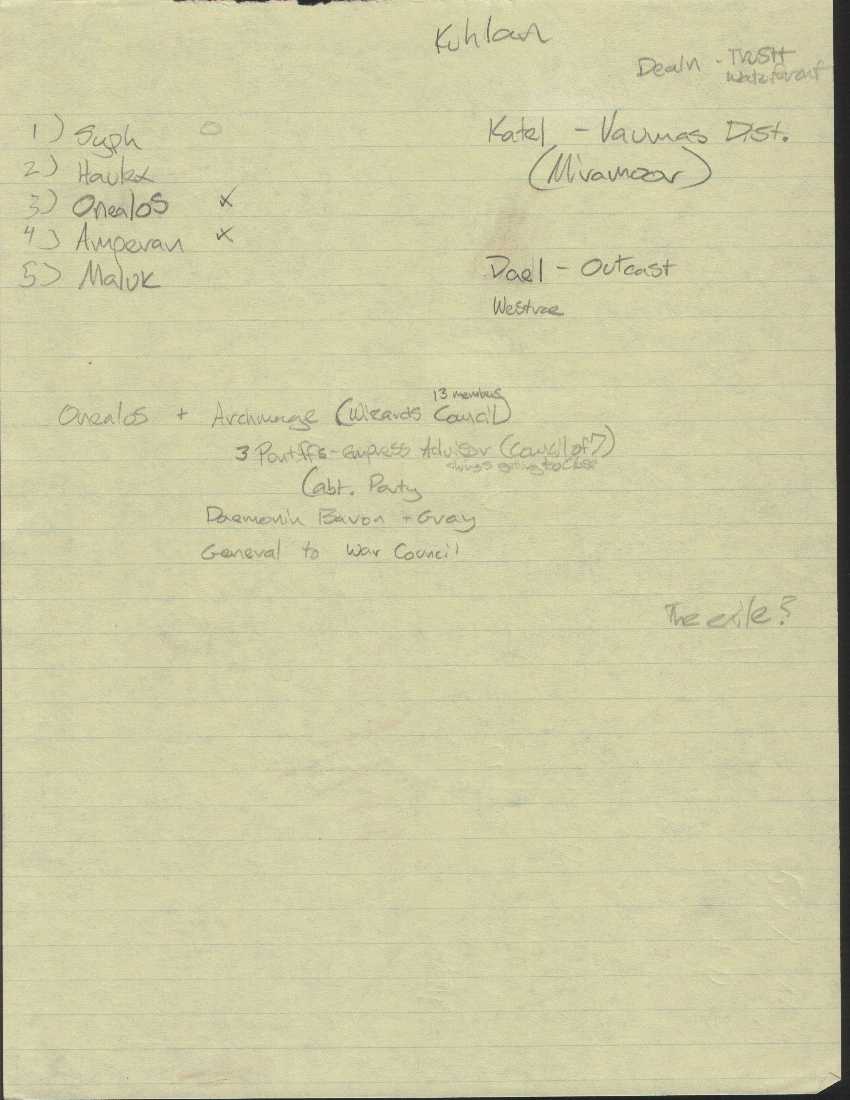 Kuhlan
Dealn - Trust
Waterfront
1) Syph O
2) Haukx
3) Onealos x
4) Amperan x
5) Maluk
Katel - Vaumas Dist.
(Miramoor)
Dael - Outcast
Westrae
13 members
Onealos + Archmage (Wizards Council)
3 Pontiffs - empress Advisor (Council of 7)
always getting too close
(abt. Party
Daemonin Baron + Gray
General to War Council
The exile?